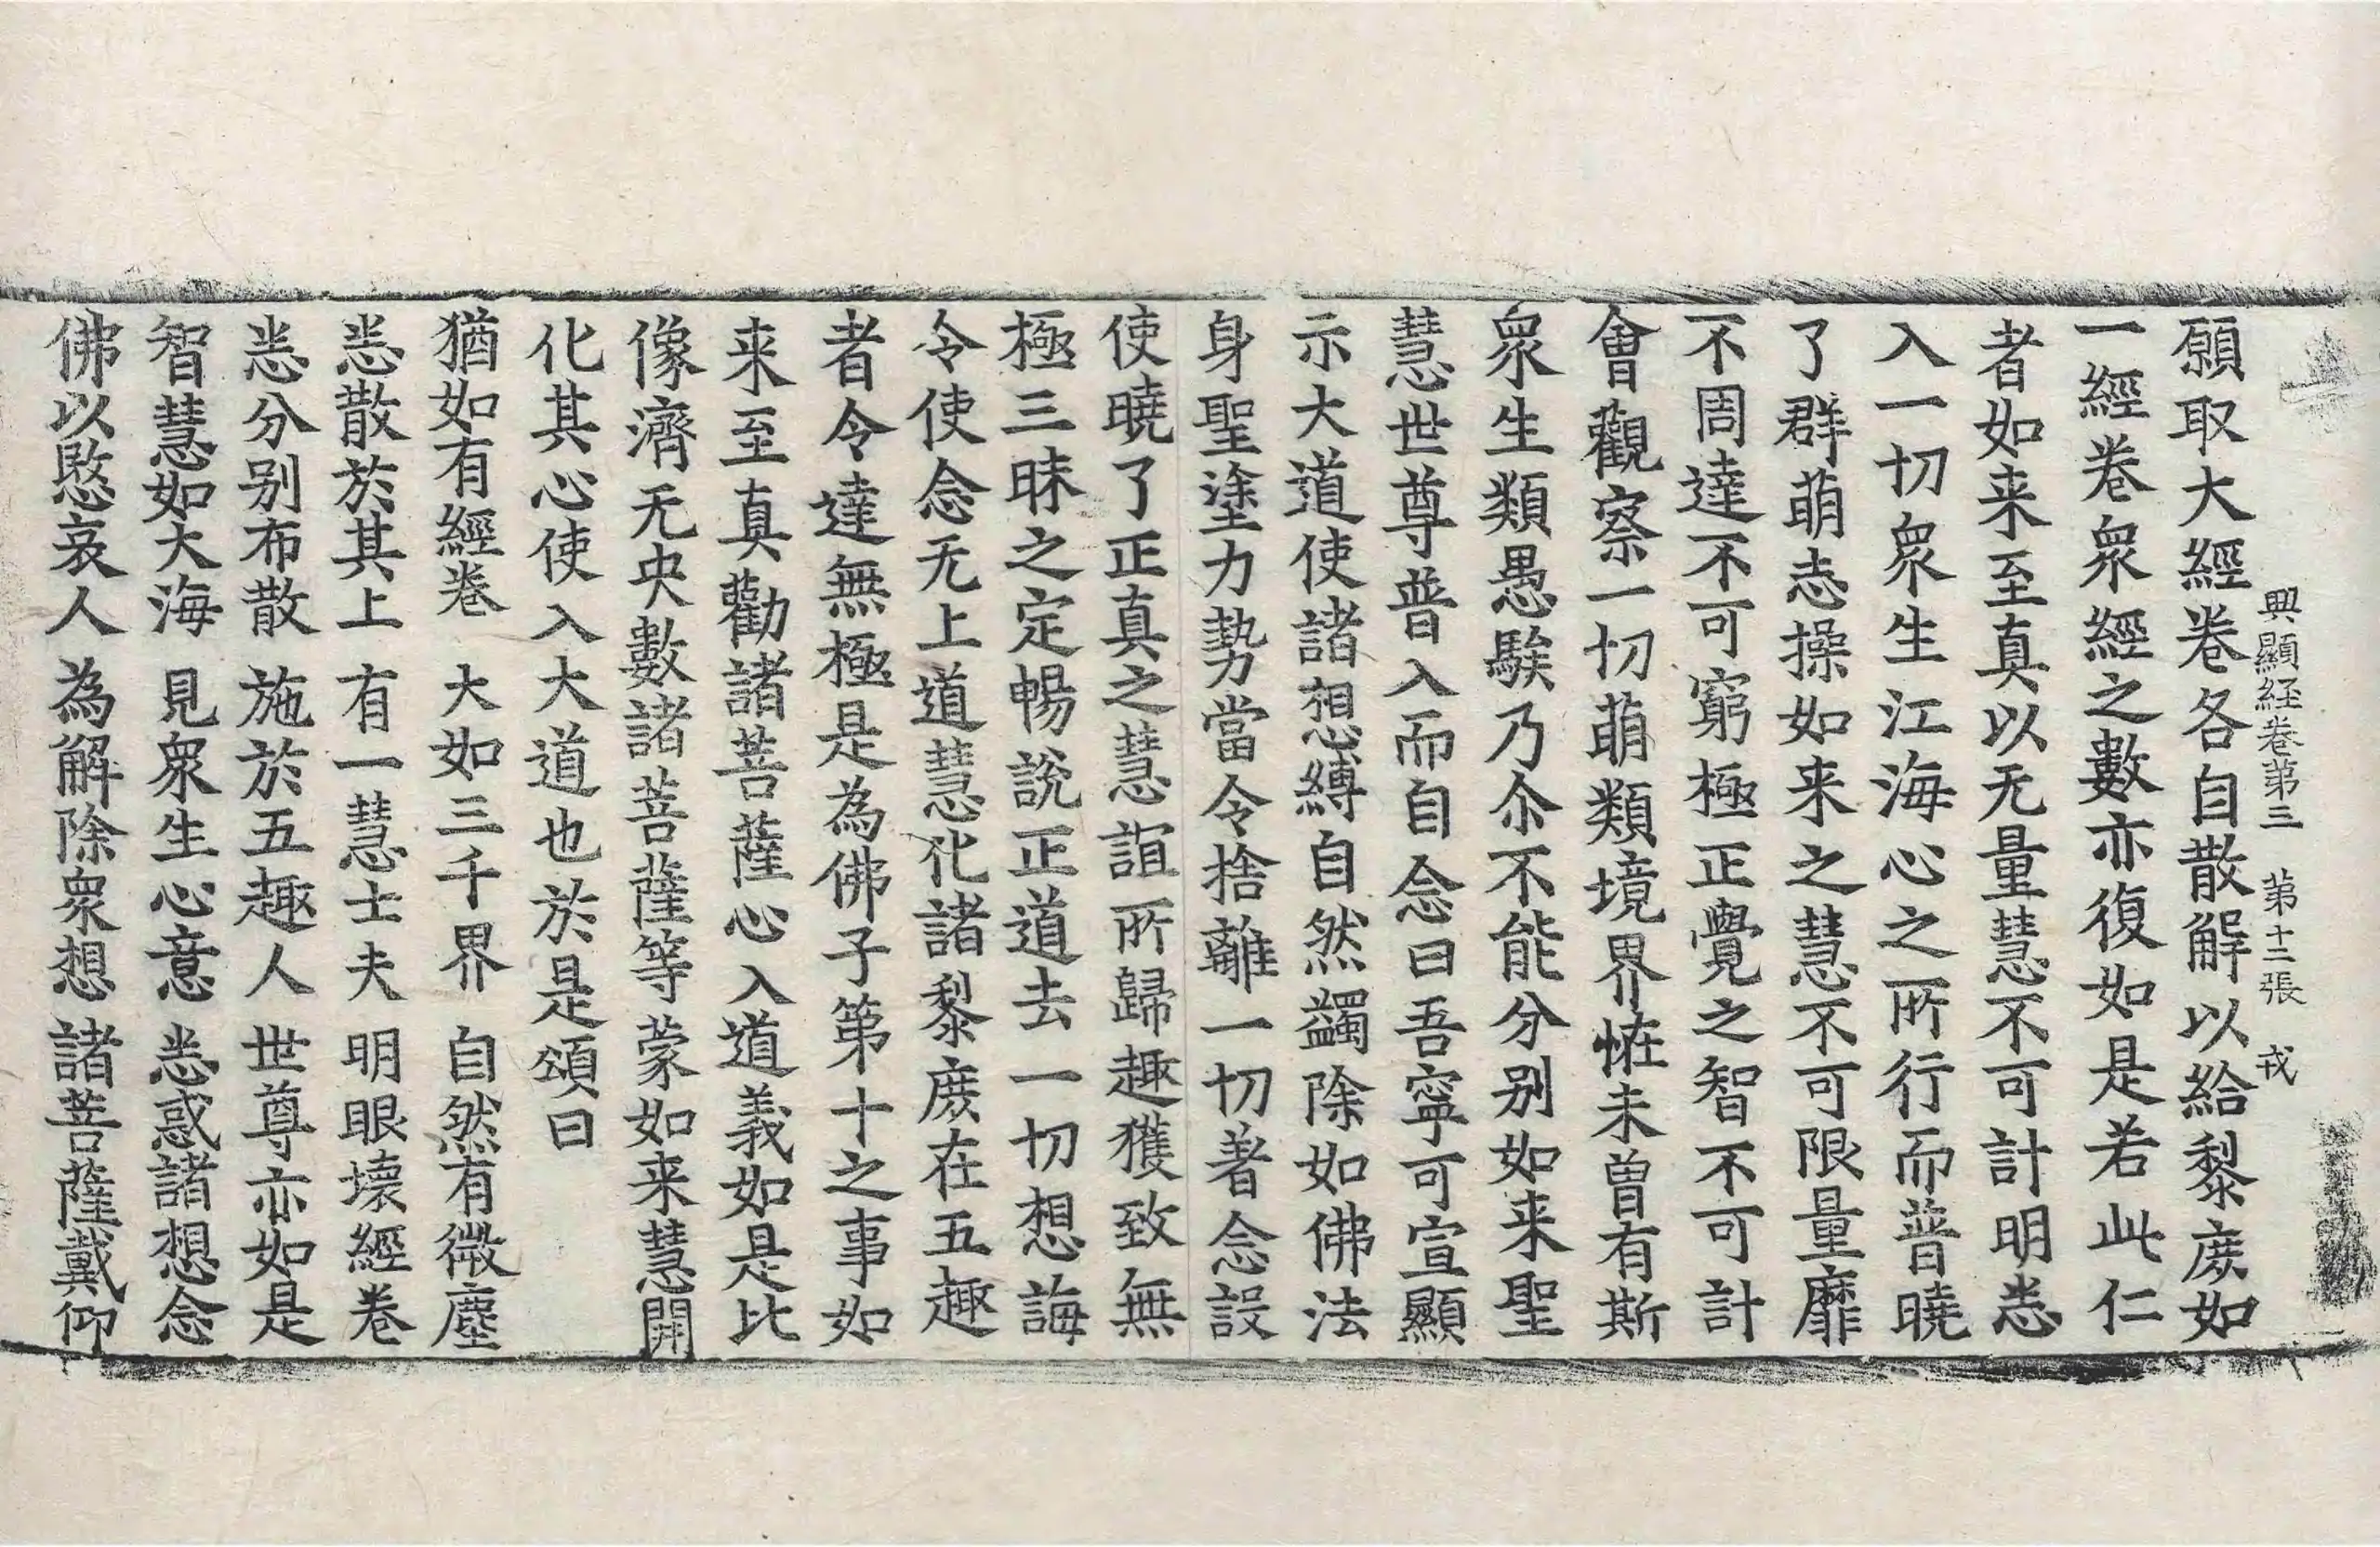 興顯経卷第三 第十二張 戎
願取大經卷各自散解以給黎庻如
一經卷衆經之數亦復如是若此仁
者如来至真以无量慧不可計明悉
入一切衆生江海心之所行而普曉
了群萌志操如来之慧不可限量靡
不周達不可窮極正覺之智不可計
會觀察一切萌類境界恠未曽有斯
衆生類愚騃乃尒不能分别如来聖
慧世尊普入而自念曰吾寧可宣顯
示大道使諸想縛自然蠲除如佛法
身聖塗力勢當令捨離一切著念設
使曉了正真之慧誼所歸趣獲致無
極三昧之定暢說正道去一切想誨
令使念无上道慧化諸黎庻在五趣
者令達無極是為佛子第十之事如
来至真勸諸菩薩心入道義如是比
像濟无央數諸菩薩等蒙如来慧開
化其心使入大道也於是頌曰
猶如有經卷 大如三千界 自然有微塵
悉散於其上 有一慧士夫 明眼壞經卷
悉分别布散 施於五趣人 世尊亦如是
智慧如大海 見衆生心意 悉惑諸想念
佛以愍哀人 為解除衆想 諸菩薩戴仰